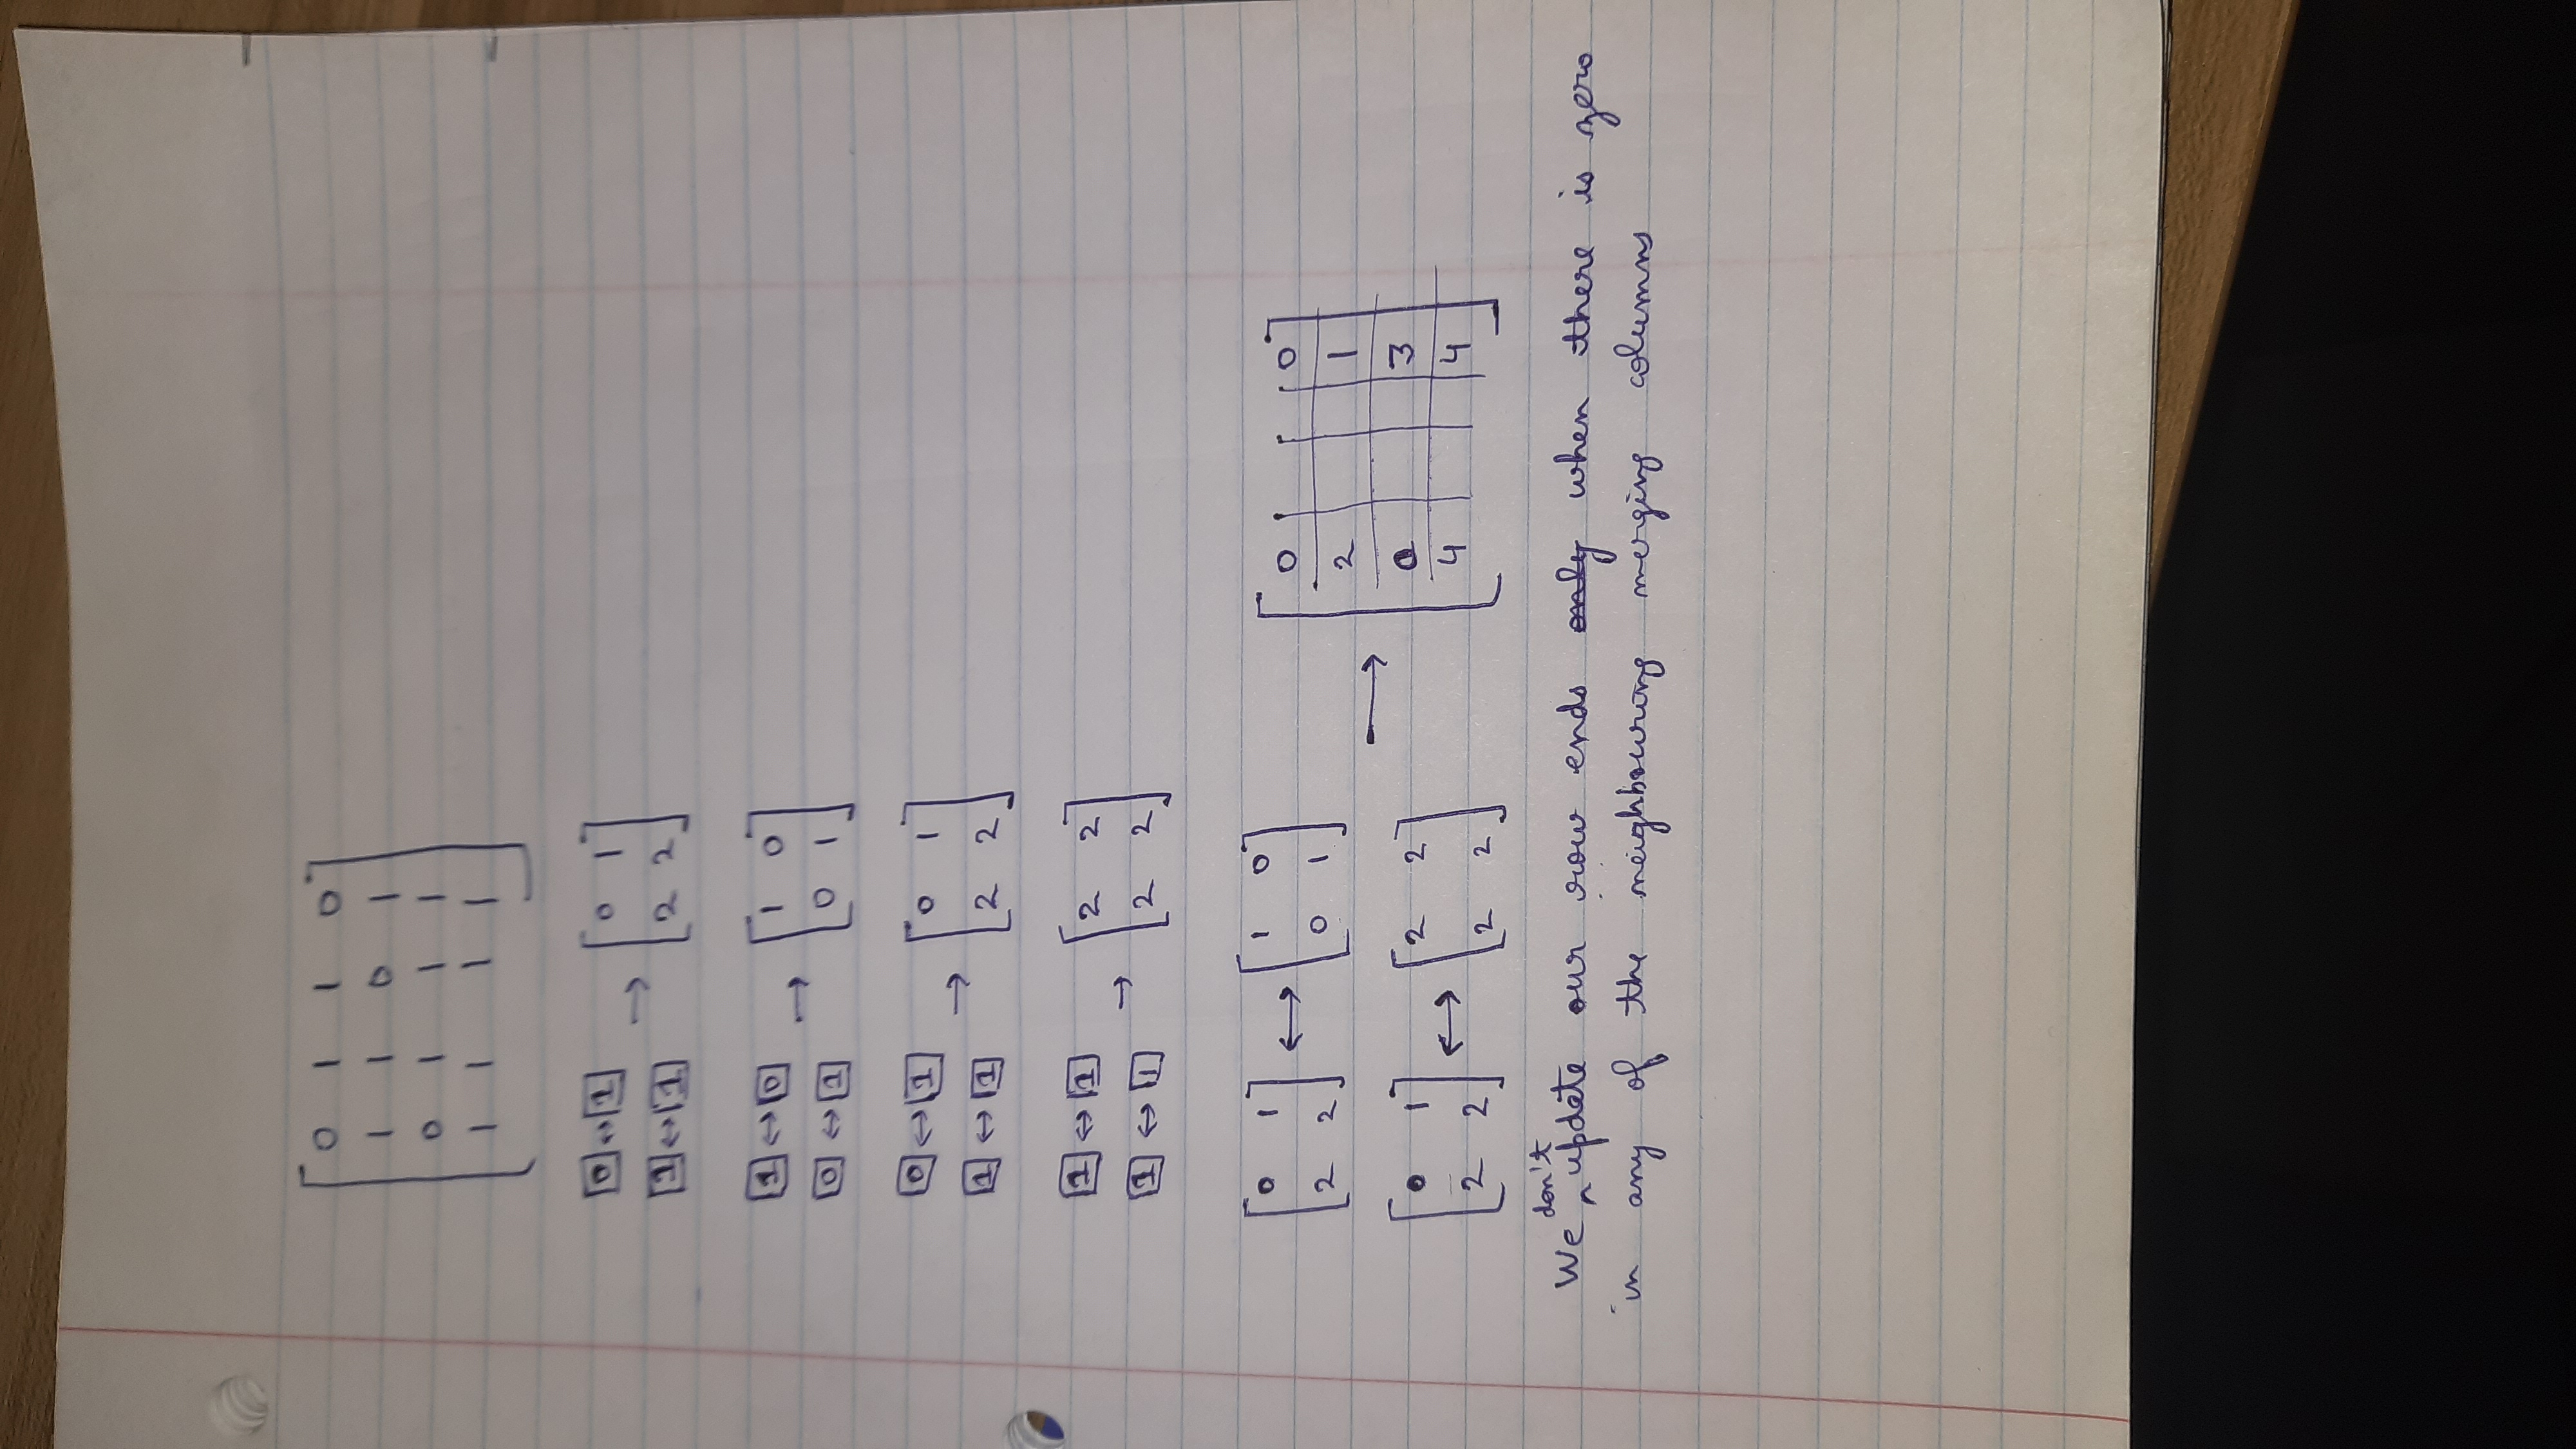 0 1 1 0
1 1 0 1
0 1 1 1
1 1 1 1
0 ↔ 1 → 0 1
1 ↔ 1 2 2
1 ↔ 0 → 1 0
0 ↔ 1 0 1
0 ↔ 1 → 0 1
1 ↔ 1 2 2
1 ↔ 1 → 2 2
1 ↔ 1 2 2
0 1 ↔ 1 0 → 0 0
2 2 0 1 2 1
0 1 ↔ 2 2 0 3
2 2 2 2 4 4
We don't update our row ends only when there is zero
in any of the neighbouring merging columns